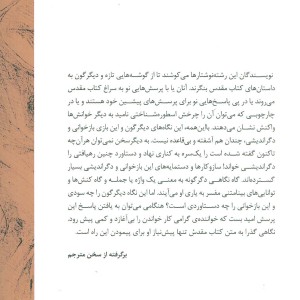 نویسندگان این رشته‌نوشتارها می‌کوشند تا از گوشه‌هایی تازه و دیگرگون به
داستان‌های کتاب مقدس بنگرند. آنان یا با پرسش‌هایی نو به سراغ کتاب مقدس
می‌روند یا در پی پاسخ‌هایی نو برای پرسش‌های پیشین خود هستند و یا در
چارچوبی که می‌توان آن را چرخش اسطوره‌شناختی نامید به دیگر خوانش‌ها
واکنش نشان می‌دهند. بااین‌همه، این نگاه‌های دیگرگون و این بازی بازخوانی و
دگراندیشی، چندان هم آشفته و بی‌قاعده نیست. به دیگرسخن نمی‌توان هرآن‌چه
تاکنون گفته شده را یک‌سره به کناری نهاد و دستاورد چنین رهیافتی را
دگراندیشی خواند؛ سازوکارها و دستمایه‌های این بازخوانی و دگراندیشی بسیار
گسترده‌اند. گاه نگاهی دگرگونه به معنی یک واژه یا جمله و گاه کنش‌ها و
توانایی‌های بینامتنی مفسر به یاری او می‌آیند. اما این نگاه دیگرگون را چه سودی
و این بازخوانی را چه دستاوردی است؟ هنگامی می‌توان به یافتن پاسخ این
پرسش امید بست که خواننده‌ی گرامی کار خواندن را بی‌آغازد و کمی پیش رود.
نگاهی گذرا به متن کتاب مقدس تنها پیش‌نیاز او برای پیمودن این راه است.
برگرفته از سخن مترجم